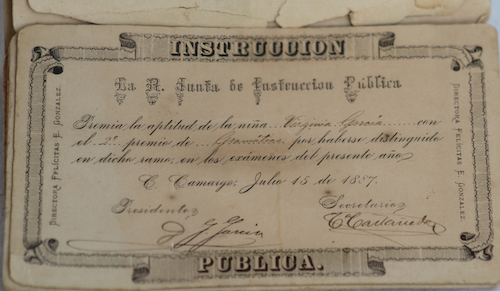 INSTRUCCION
La R. Junta de Instruccion Pública
Premia la aptitud de la niña Virginia García con
el 2º premio de Gramática, por haberse distinguido
en dicho ramo, en los exámenes del presente año
C. Camargo, Julio 15 de 1887.
Presidente
Secretario
J. García
T. Castañeda
PUBLICA.
DIRECTORA FELÍCITAS E. GONZALEZ.
DIRECTORA FELÍCITAS E. GONZALEZ.